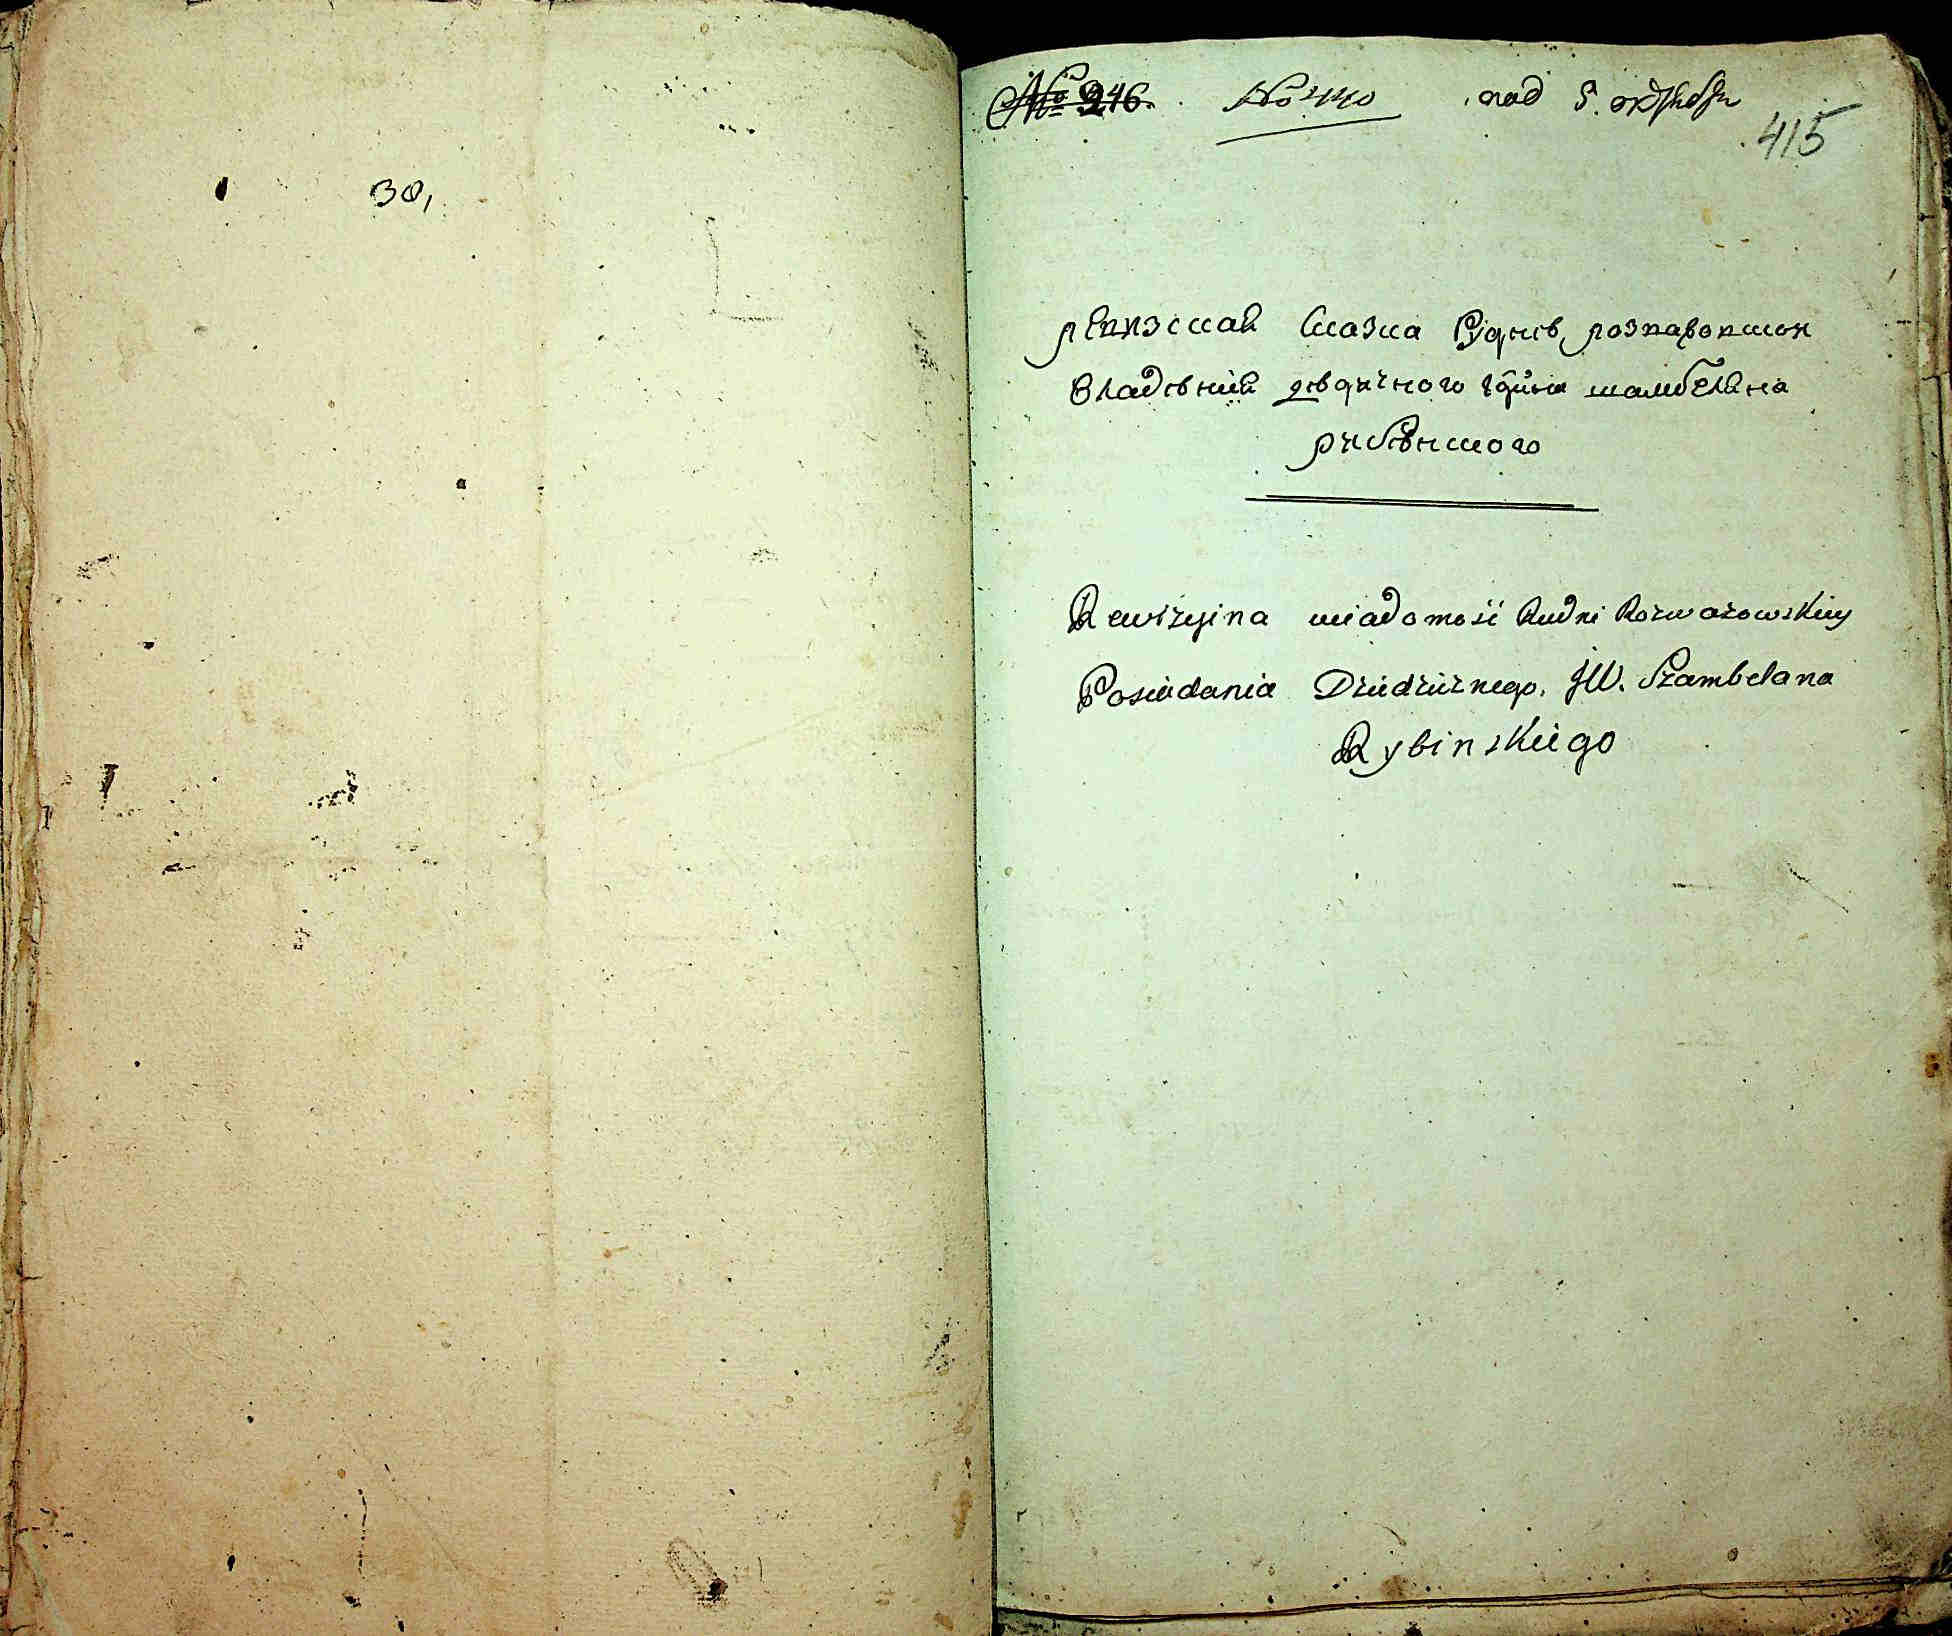 30,
№ 246. № 440 под 5. октября
415
ревизская сказка Рудни розважовской
владения дедичного г̃дна шамбеляна
рибѣнского
Rewizyina wiadomość Rudni Rozwazowskiey
Posiadania Dziedzicznego. JW. Szambelana
Rybinskiego